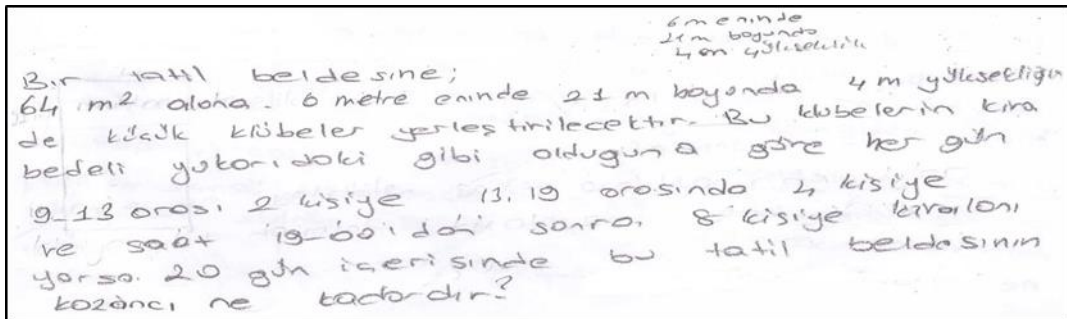 6 m eninde
21 m boyunda
4 m yükseklik
Bir tatil beldesine;
64 m² alana 6 metre eninde 21 m boyunda 4 m yüksekliğin
de küçük klübeler yerleştirilecektir. Bu klübelerin kira
bedeli yukarıdaki gibi olduguna göre her gün
9-13 arası 2 kişiye 13.19 arasında 4 kişiye
ve saat 19-00'dan sonra 8 kişiye kiralanı
yorsa. 20 gün içerisinde bu tatil beldesinin
kazancı ne kadardır?